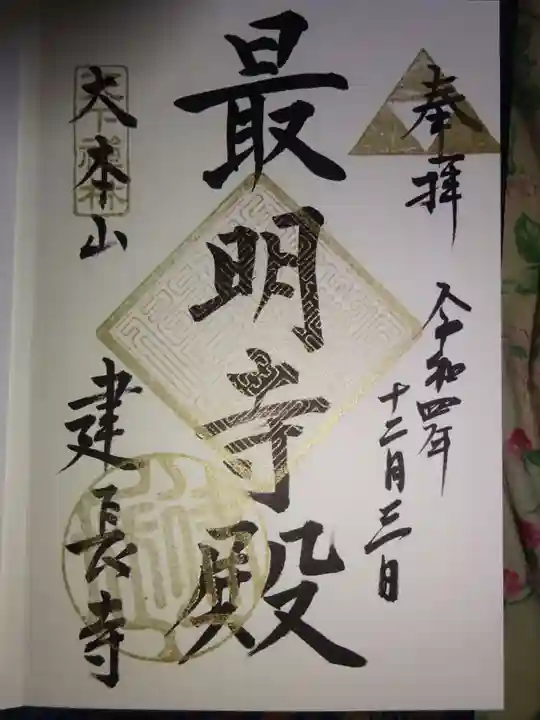 奉拝
令和四年
十二月三日
最明寺殿
大本山
建長寺
天下禅林